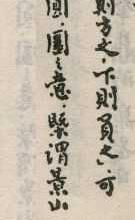 則方之、下則員之、可
圓、圓之意、緊謂景山